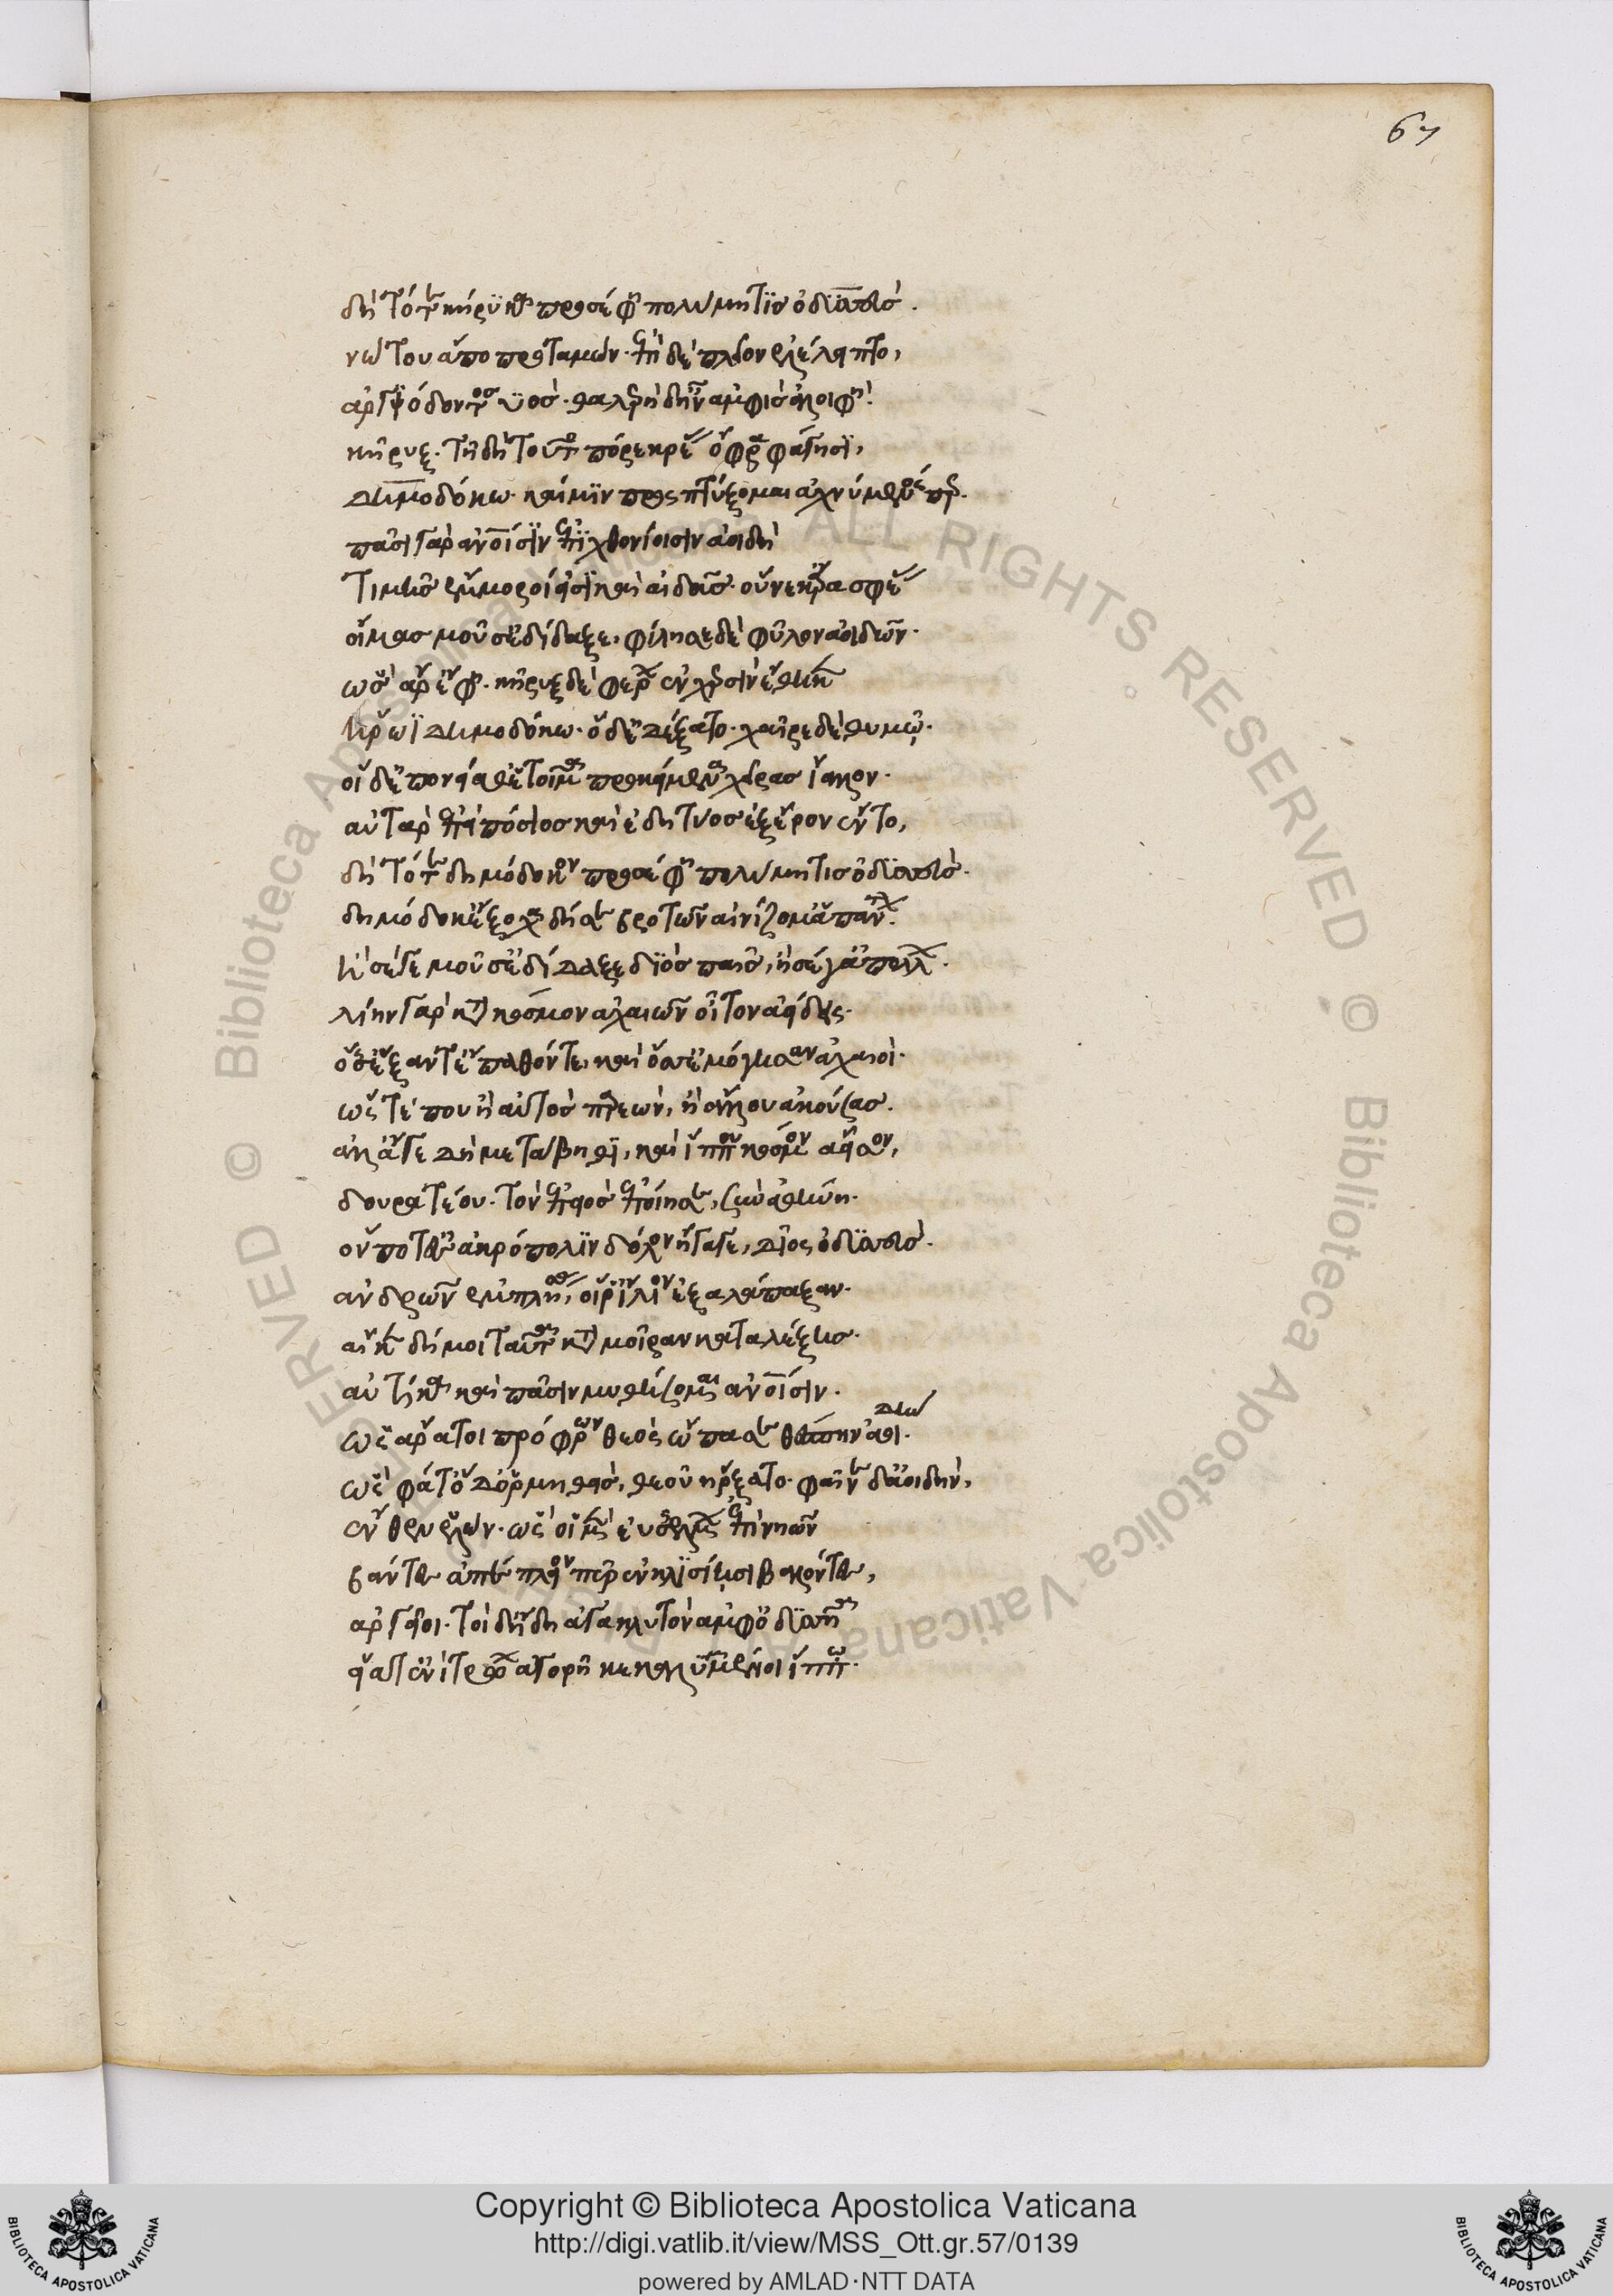 67
δὴ τότε κήρυκα προσέφη πολύμητις ὀδυσσεύς.
νώτου ἀποπροταμών. ἐπὶ δὲ πλεῖον ἐλέλειπτο,
ἀργιόδοντος ὑός. θαλερὴ δ' ἦν ἀμφὶς ἀλοιφή.
κῆρυξ. τῆ δὴ τοῦτο πόρε κρέας ὄφρα φάγησι,
δημοδόκω. καί μιν προσπτύξομαι ἀχνύμενός περ.
πᾶσι γὰρ ἀνθρώποισιν ἐπιχθονίοισιν ἀοιδοὶ
τιμῆς ἔμμοροί εἰσι καὶ αἰδοῦς. οὕνεκ' ἄρα σφέας
οἴμας μοῦσ' ἐδίδαξε, φίλησε δὲ φῦλον ἀοιδῶν.
ὣς ἄρ' ἔφη. κῆρυξ δὲ φέρων ἐν χερσὶν ἔθηκεν
ἥρωϊ δημοδόκω. ὁ δ' ἐδέξατο. χαῖρε δὲ θυμῷ.
οἱ δ' ἐπ' ὀνείαθ' ἑτοῖμα προκείμενα χεῖρας ἴαλλον.
αὐτὰρ ἐπεὶ πόσιος καὶ ἐδητύος ἐξ ἔρον ἕντο,
δὴ τότε δημόδοκον προσέφη πολύμητις ὀδυσσεύς.
δημόδοκ' ἔξοχα δή σε βροτῶν αἰνίζομ' ἁπάντων.
ἢ σέ γε μοῦσ' ἐδίδαξε διὸς παῖς, ἢ σέ γ' ἀπόλλων.
λίην γὰρ κατὰ κόσμον ἀχαιῶν οἶτον ἀείδεις.
ὅσσ' ἔρξαν τ' ἔπαθόν τε, καὶ ὅσσ' ἐμόγησαν ἀχαιοί.
ὥς τέ που ἢ αὐτὸς παρεών, ἢ ἄλλου ἀκούσας.
ἀλλ' ἄγε δὴ μετάβηθι, καὶ ἵππου κόσμον ἄεισον,
δουρατέου. τὸν ἐπειὸς ἐποίησε, σὺν ἀθήνη.
ὅν ποτ' ἐς ἀκρόπολιν δόλον ἤγαγε, δῖος ὀδυσσεύς.
ἀνδρῶν ἐμπλήσας, οἵ ῥ' ἴλιον ἐξαλάπαξαν.
αἴ κεν δή μοι ταῦτα κατὰ μοῖραν καταλέξεις.
αὐτίκα καὶ πᾶσιν μυθήσομαι ἀνθρώποισιν.
ὡς ἄρα τοι πρόφρων θεὸς ὤπασε θέσπιν ἀοιδήν.
ὣς φάτο, ὁ δ' ὁρμηθεὶς, θεοῦ ἤρξατο. φαῖνε δ' ἀοιδὴν,
ἔνθεν ἑλών. ὡς οἱ μὲν ἐυσσέλμων ἐπὶ νηῶν
βάντες ἀπέπλειον πῦρ ἐν κλισίῃσι βαλόντες,
ἀργεῖοι. τοὶ δ' ἤδη ἀγακλυτὸν ἀμφ' ὀδυσῆα
εἵατ' ἐνὶ τρώων ἀγορῆ κεκαλυμμένοι ἵππω.
Copyright © Biblioteca Apostolica Vaticana
http://digi.vatlib.it/view/MSS_Ott.gr.57/0139
powered by AMLAD·NTT DATA